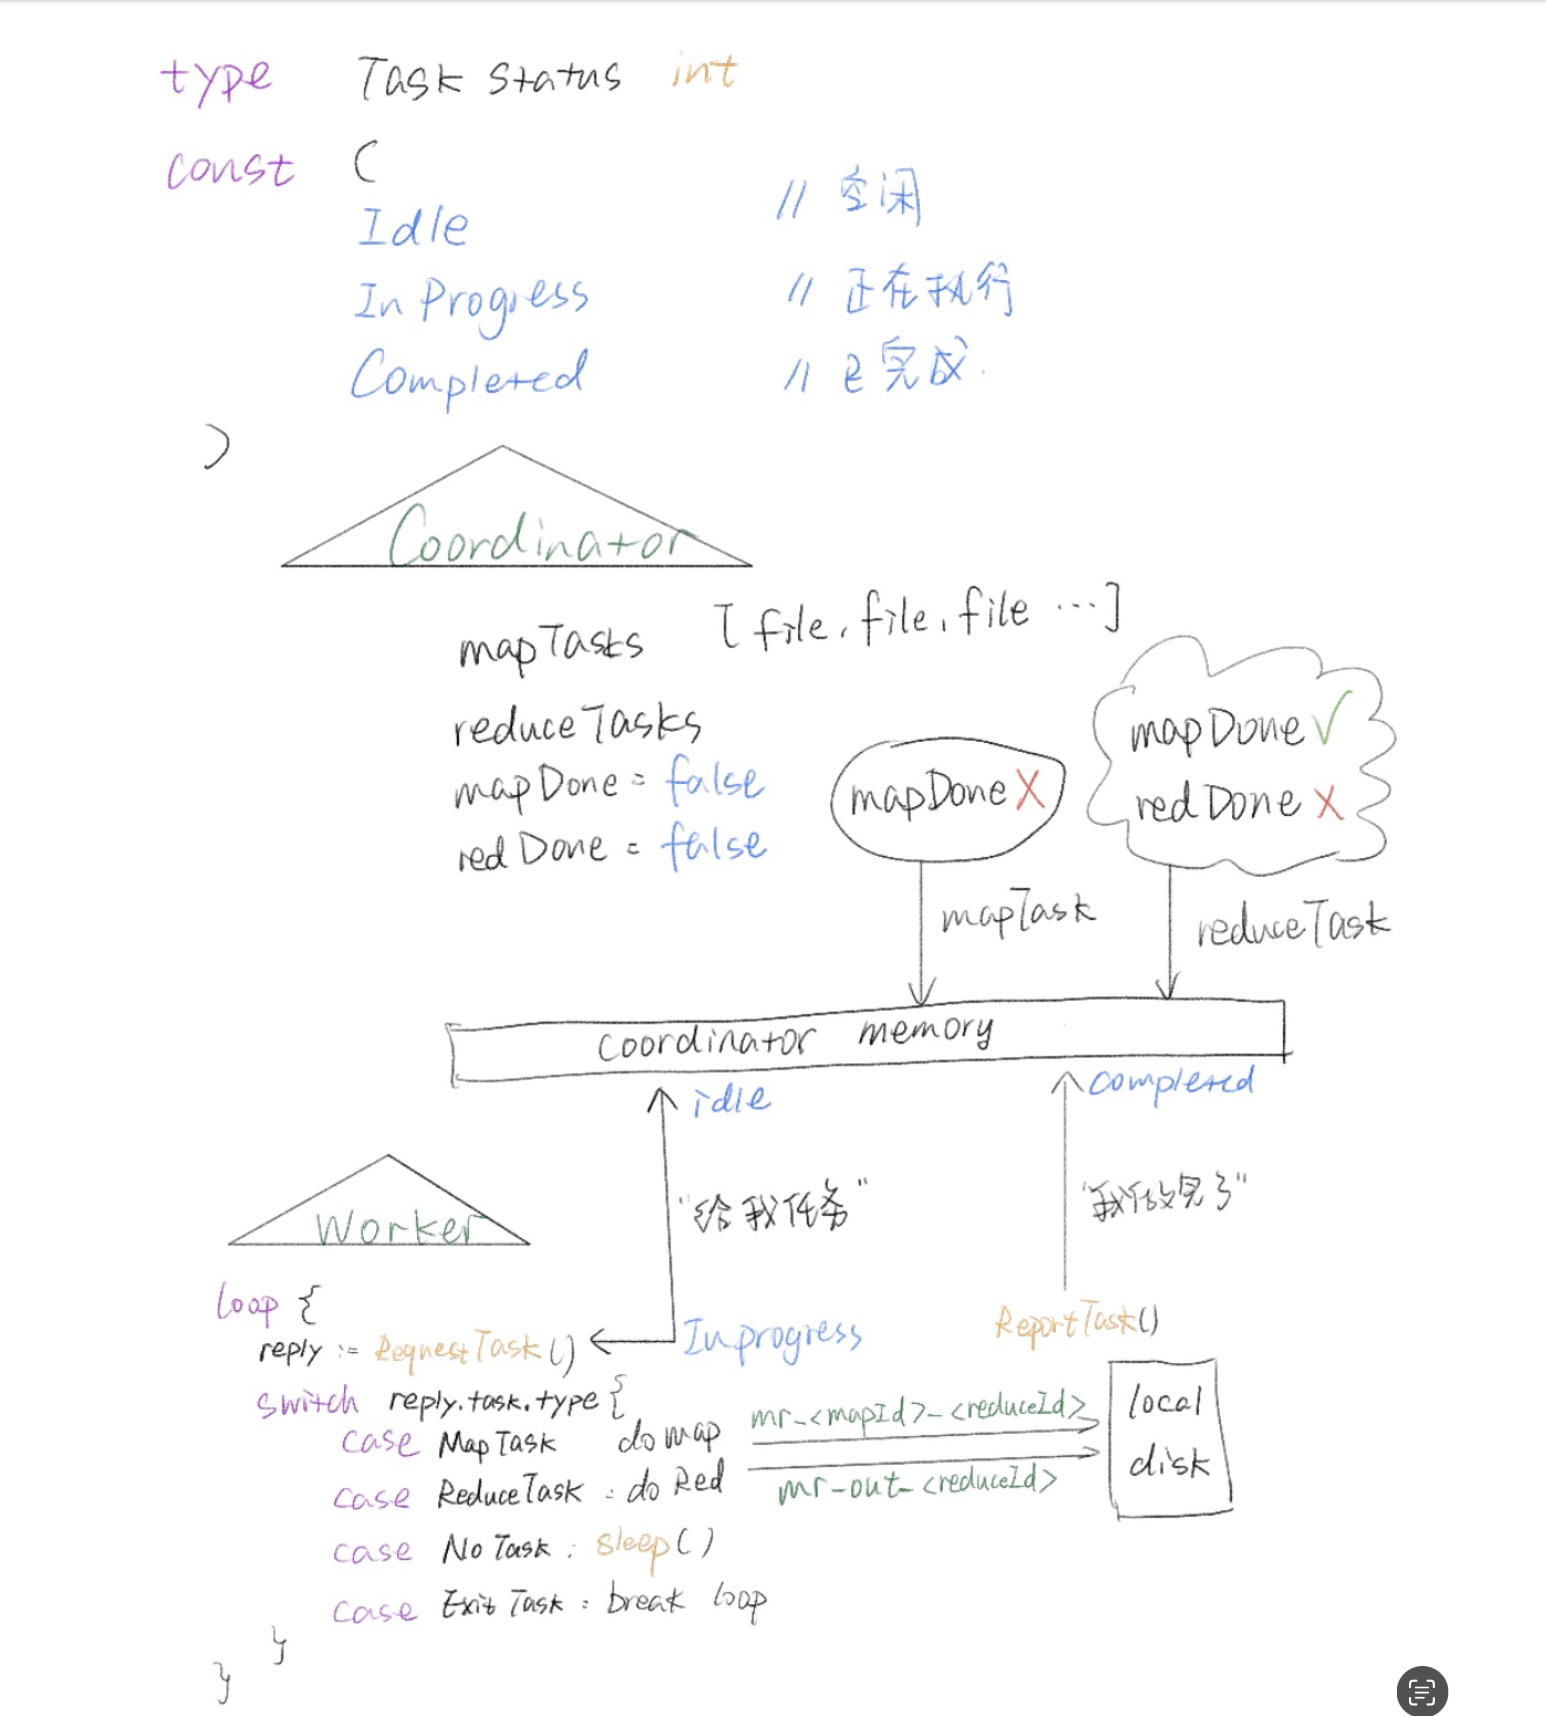 type TaskStatus int
const (
Idle // 空闲
InProgress // 正在执行
Completed // 已完成.
)
Coordinator
mapTasks [file, file, file ...]
reduceTasks
mapDone = false
redDone = false
mapDone X
mapDone √
redDone X
mapTask
reduceTask
coordinator memory
idle
completed
"给我任务"
"我做完了"
Worker
loop {
reply := RequestTask()
Inprogress
ReportTask()
switch reply.task.type {
case MapTask do map
case ReduceTask : do Red
case NoTask : sleep()
case ExitTask : break loop
}
}
mr-<mapId>-<reduceId>
mr-out-<reduceId>
local
disk